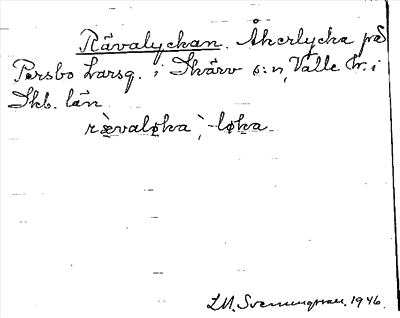 Rävalyckan. Åkerlycka på
Persbo Larsg. i Skärv s:n, Valle hr. i
Skb. län.
rævaløka, -løka.
L.M. Svenungsson. 1946.